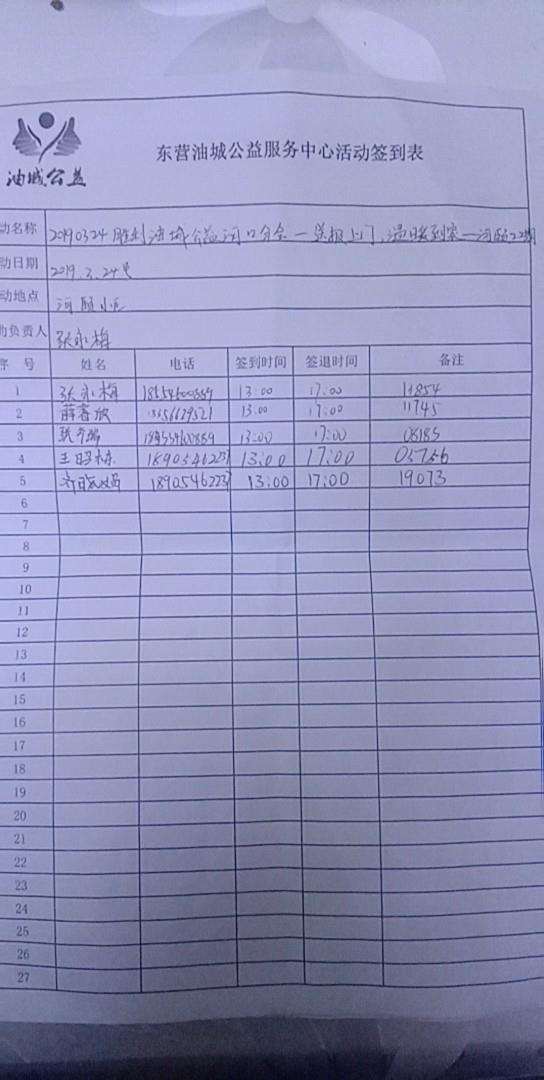 油城公益
东营油城公益服务中心活动签到表
动名称 20190324胜利油城公益河口分会—送报上门,温暖到家—河颐22期
动日期 2019.3.24号
动地点 河颐小区
负责人 张永梅
序 号 姓名 电话 签到时间 签退时间 备注
1 张永梅 18554600889 13:00 17:00 11854
2 薛春欣 13:00 17:00 11745
3 13:00 17:00 08185
4 18905462237 13:00 17:00 05756
5 18905462237 13:00 17:00 19073
6
7
8
9
10
11
12
13
14
15
16
17
18
19
20
21
22
23
24
25
26
27